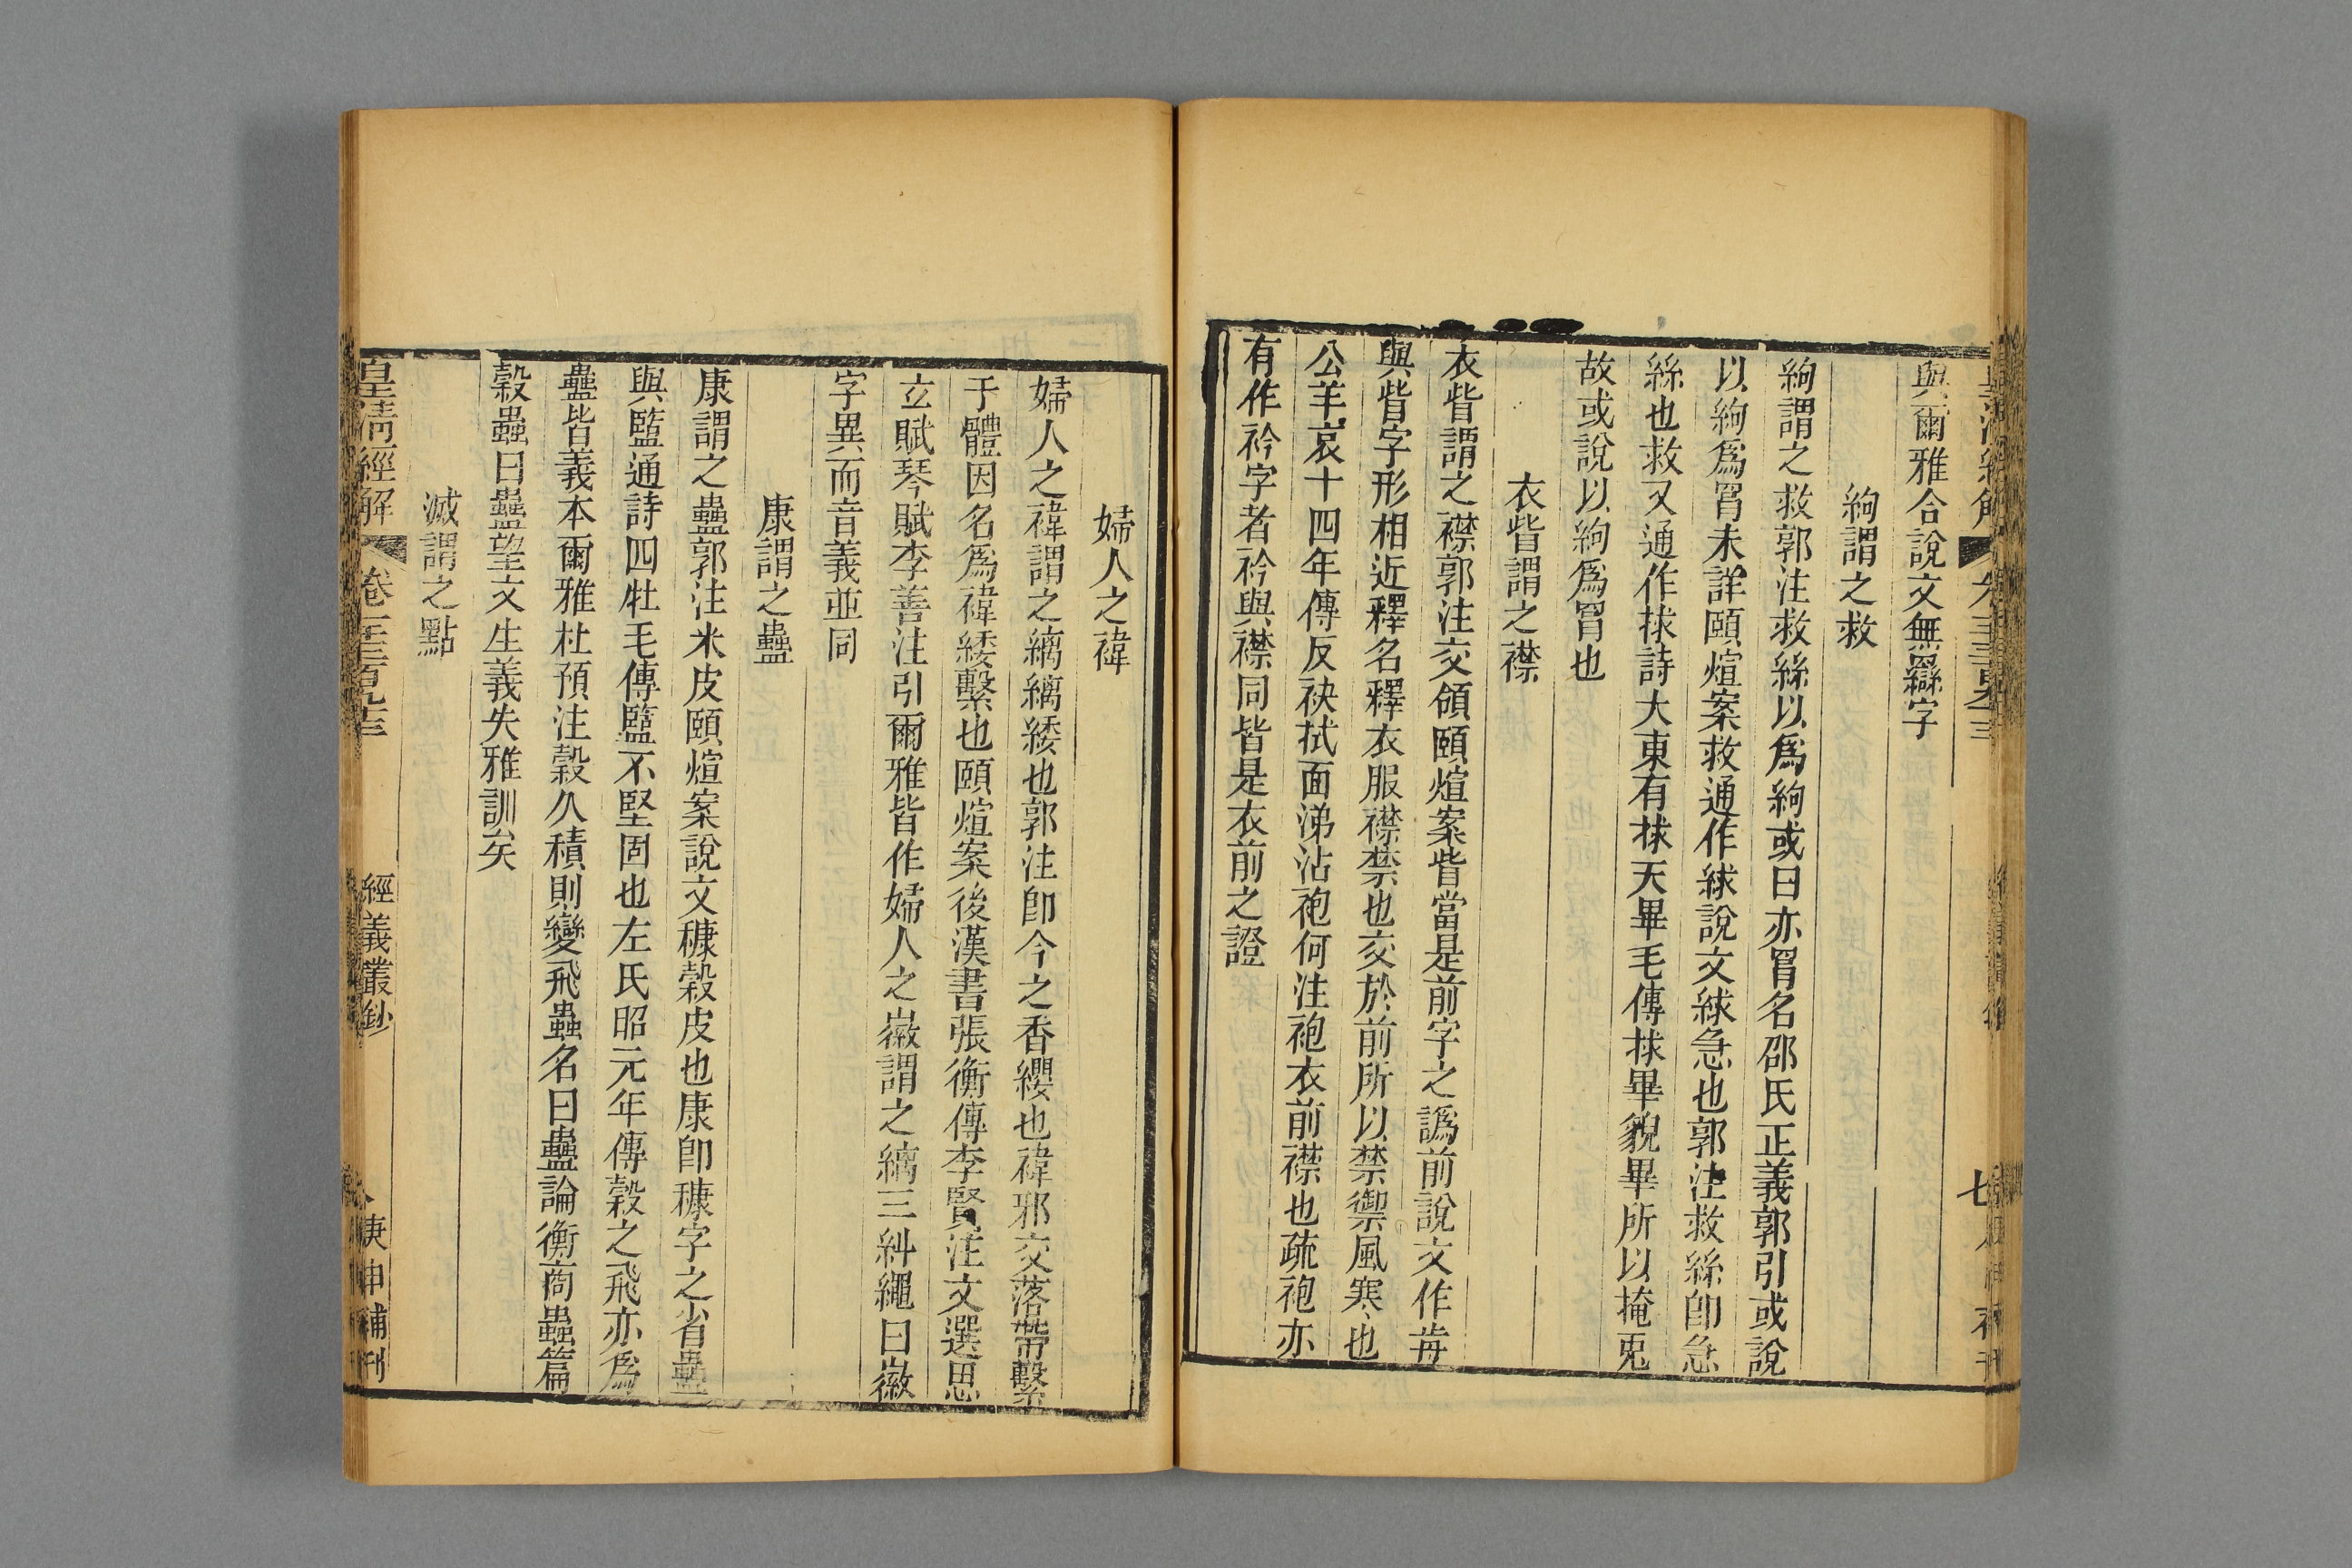 與爾雅合說文無羉字
絇謂之救
絇謂之救郭注救絲以爲絇或曰亦罥名邵氏正義郭引或說
以絇爲罥未詳頤煊案救通作絿說文絿急也郭注救絲卽急
絲也救又通作捄詩大東有捄天畢毛傳捄畢貌畢所以掩兎
故或說以絇爲罥也
衣眥謂之襟
衣眥謂之襟郭注交領頤煊案眥當是前字之譌前說文作歬
與眥字形相近釋名釋衣服襟禁也交於前所以禁禦風寒也
公羊哀十四年傳反袂拭面涕沾袍何注袍衣前襟也疏袍亦
有作衿字者衿與襟同皆是衣前之證
婦人之褘
婦人之褘謂之縭縭緌也郭注卽今之香纓也褘邪交落帶繫
于體因名爲褘緌繫也頤煊案後漢書張衡傳李賢注文選思
玄賦琴賦李善注引爾雅皆作婦人之徽謂之縭三糾繩曰徽
字異而音義並同
康謂之蠱
康謂之蠱郭注米皮頤煊案說文穅穀皮也康卽穅字之省蠱
與盬通詩四牡毛傳盬不堅固也左氏昭元年傳穀之飛亦爲
蠱皆義本爾雅杜預注穀久積則變飛蟲名曰蠱論衡商蟲篇
穀蟲曰蠱望文生義失雅訓矣
滅謂之點
皇淸經解
經義叢鈔
庚申補刊